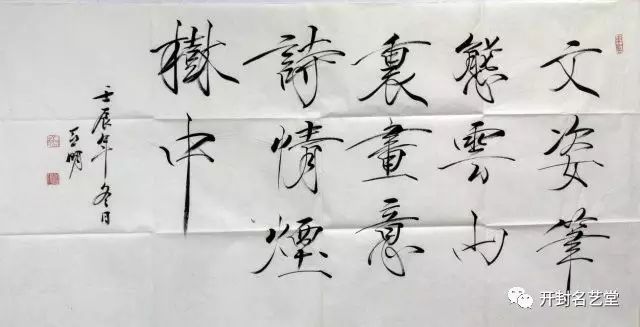 文姿筆
態雲山
裏畫意
詩情煙
樹中
壬辰年冬日
开封名艺堂